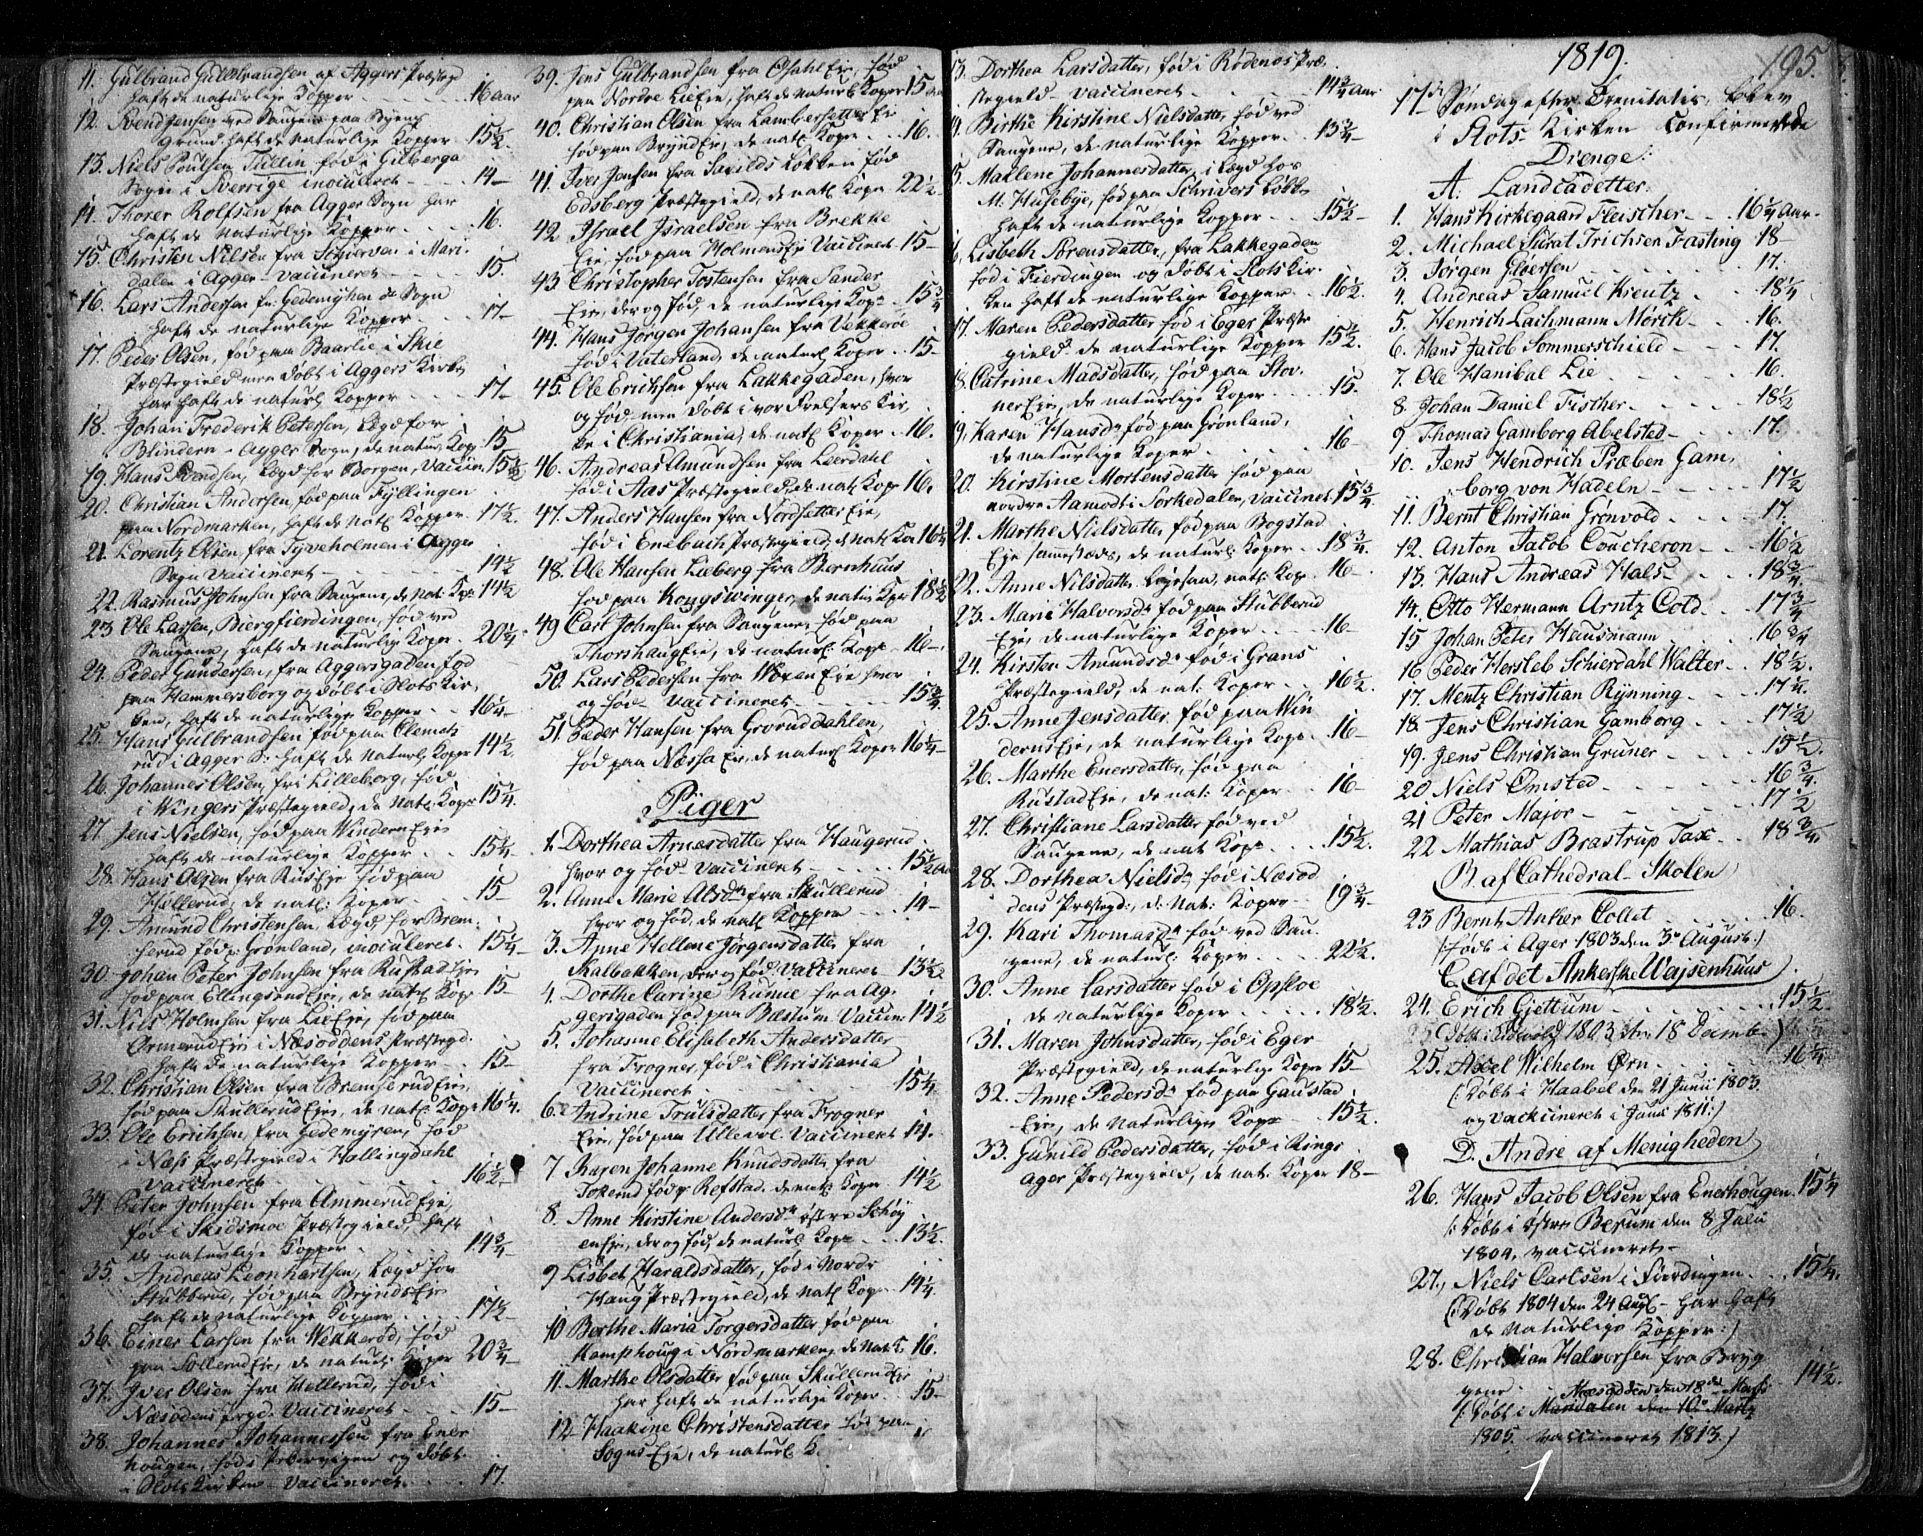 11. Gulbrand Gulbrandsen af Aggers Præstegd
haft de naturlige Kopper 16 aar
12. Svend Jensen ved Saugene paa Myens
grund haft de Naturlige Kopper 15½.
13. Niels Poulsen Tullin, fød i Gilberga
Sogn i Sverrige inoculeret 14-
14. Thorer Rolfsen fra Agger Sogn har
haft de Naturlige Kopper 16.
15. Christen Nilsen fra Skiervan i Mari-
dalen i Agger - vaccineret 15.
16. Lars Andersen fra Gedemyhren Sogn
haft de naturlige Kopper 17-
17. Peder Olsen, fød paa Baarlie i Skie
Præstegield men døbt i Aggers Kirke
har haft de naturl Kopper 17-
18. Johan Frederik Petersen, Lægd for
Blindern - Agger Sogn, de natur. Kop 15
19. Hans Svendsen, Lægd for Borgen, Vaccin. 15½
20. Christian Andersen, fød paa Fyllingen
paa Nordmarken, haft de Natl Kopper 17½.
21. Lorentz Olsen fra Tyveholmen i Agger
Sogn Vaccineret 14½
22. Rasmus Johnsen fra Saugene, de Nat. Kop 14½
23 Ole Larsen, Biergfierdingen, fød ved
Saugene, haft de naturlig Kopr 20¼
24. Peder Gundersen, fra Aggersgaden fød
paa Hammersborg og døbt i Slots Kir,
ken, haft de naturlige Kopper 16¼
25. Hans Gulbrandsen fød paa Clemets
rud i Agger S. haft de Naturl. Koper 14½
26. Johannes Olsen, fri Lilleborg, fød
i Wingers Præstegield, de Natl Koper 15¼
27. Jens Nielsen, fød paa Windern Eje
haft de naturlige Kopper 15¼
28. Hans Olsen fra Rus Eje fød paa
Hollerud, de natl. Koper 15
29. Amund Christensen, Lægd for Brem-
serud fød p. Grønland, inoculeret 15¼
30. Johan Peter Johnsen fra Rustad Eje
fød paa Ellingsrud Eje, de natl Kopr 15
31. Niels Holmsen fra Lie Eje, fød paa
Ormerud Eje i Næsoddens Præstegd.
haft de naturlige Kopper 15
32. Christian Olsen fra Bremserud Eje
fød paa Skullerud Eje, de natl Kopr 16¼.
33. Ole Erichsen, fra Gedemyren, fød
i Næss Præstegield i Hallingdahl
Vaccineret 16½
34. Peter Johnsen fra Ammerud Eje,
fød i Skidsmoe Præstegield, haft
de naturlige Kopper 14¾
35. Andreas Leonhartsen, Lægd for
Stubberud, fød paa Bryns Eje
haft de naturlige Kopper 17½
36. Einer Larsen fra Wekkerød, fød
paa Sollerud Eje, de naturl. Koper 20¾
37. Iver Olsen fra Hellerud, fød i
Næsodens prgd. Vaccineret 15-
38. Johannes Johannessen fra Ener
hougen, fød i Pebervigen og døbt
i Slots Kirken - Vaccineret 17.
39. Jens Gulbrandsen fra Opsahl Eje, fød
paa Nordre Lie Eje, haft de naturl Koper 15 aar
40. Christian Olsen fra Lambersetter Eje
fød paa Brynd Eje, de natl Kopr 16.
41. Iver Jensen fra Sarilds Løkken fød
Edsberg Præstegield, de natl Kopr 22½
42. Israel Israelsen fra Brekke
Eje, fød paa Holmens Eje Vaccineret 15-
43 Christopher Tostensen fra Sander
Eje, der og fød, de naturlige Kopr 15¾
44. Hans Jørgen Johansen fra Vekkerøe
fød i Vaterland, de naturl Koper 15-
45. Ole Erichsen fra Lakkegaden, hvor
og fød men døbt i vor Frelsers Kir,
ke i Christiania, de natl Koper 16.
46. Andreas Amundsen fra Leerdahl
fød i Aas Præstegield, de natl Kopr 16.
47. Anders Hansen fra Nordsetter Eje,
fød i Enebach Præstegield, de natl Kop 16¼
48. Ole Hansen Lieberg fra Bernhuus
fød paa Kongswinger, de natur Kopr 18½
49 Carl Johnsen fra Saugene, fød paa
Thorshaug Eje, de naturl. Kopr 16-
50. Lars Pedersen fra Woxen Eje hvor
og fød - Vaccineret 15¾
51. Peder Hansen fra Grorud Dahlen
fød paa Næssa Eje, de naturl Koper 16¼
Piger
1. Dorthea Arnesdatter fra Haugerud
hvor og fød - Vaccineret 15½ aar
2. Anne Marie Olsdr fra Skullerud
hvor og fød, de natl Kopper 14-
3. Anne Hellene Jørgensdatter fra
Kalbakken, der og fød, Vaccineret 13½
4. Dorthe Carine Runne fra Ag-
gersgaden fød paa Bærum Vaccin. 14½
5. Johanne Elisabeth Andersdatter
fra Frogner, fød i Christiania
Vaccineret 15¼
6. Andrine Trulsdatter fra Frogner
Eje, fød paa Ullevol. Vaccineret 14.
7 Karen Johanne Knudsdatter fra
Tokerud fød p. Refstad, de natl Kopr 14½
8. Anne Kirstine Andersdr østre Schøy
en Eje, der og fød, de naturl Kopr 13½.
9 Lisbet Haraldsdatter, fød i Nordr
Houg Præstegield, de natl Kopr 14¼
10 Berthe Maria Torgersdatter fød paa
Kamphoug i Nordmarken, de Nat. K. 16.
11. Marthe Olsdatter fød paa Skullerud Eje
har haft de naturlige Koper 15-
12 Haakine Christensdatter fød paa
Sogns Eje, de naturl K.
13. Dorthea Larsdatter, fød i Rødenes Præ,
stegield - vaccineret 14¾ aar
14. Birthe Kirstine Nielsdatter fød ved
Saugene, de naturlige Kopper 13¾
15. Marlene Johannesdatter, i Lægd hos
M. Husebye, fød paa Schrivers Løkke
haft de naturlige Kopper 15½
16. Lisbeth Sørensdatter, fra Lakkegaden
fød i Fierdingen og døbt i Slots Kir-
ken haft de naturlige Kopper 16½.
17. Maren Pedersdatter fød i Eger Præste
gield de naturlige Kopper 15½.
18. Catrine Madsdatter, fød paa Stov-
ner Eje, de naturlige Koper 15.
19. Karen Hansdr fød paa Grønland,
de naturlige Koper 16
20. Kirstine Mortensdatter fød paa
nordre Aamodt i Sørkedalen, vaccinet. 15¾
21. Marthe Nielsdatter, fød paa Bogstad
Eje sammesteds, de naturl Koper 18¾.
22. Anne Nilsdatter Løgesaa, natl. Kopr 16-
23. Marie Halvorsdr fød paa Stubberud
Eje, de naturlige Koper 16-
24. Kirsten Amundsdr fød i Grans
Præstegield, de nat: Koper 16½.
25. Anne Jensdatter fød paa Win
derns Eje, de naturlige Kopr 16-
26. Marthe Enersdatter, fød paa
Rustad Eje, de nat: Koper 16-
27. Christiane Larsdatter fød ved
Saugene, de nat Kopr 15½.
28. Dorthea Nielsdr fød i Næsod
dens Præstegd., de Nat: Kopre 19¾
29. Kari Thomasdr fød ved Sau-
gene, de naturl: Koper 22½.
30. Anne Larsdatter fød i Opsloe
de Naturlige Koper 18½.
31. Maren Johnsdatter, fød i Eger
Præstegield, de naturlige Kopr 15-
32. Anne Pedersdr fød paa Gaustad
Eje, de Naturlige Kopr 15½.
33. Gunild Pedersdatter, fød i Rings
ager Præstegield, de nat. Koper 18-
1819. 195.
17de Søndag efter Trenitatis, bleve
i Slots Kirken Confirmerede
Drenge:
A. Landcadetter
1. Hans Kirkegaard Fleischer 16¼ Aar.
2. Michael Surat Trichsen Fasting 18-
3. Jørgen Gløersen 17.
4. Andreas Samuel Kreutz 18¼
5. Henrich Lachmann Mørch 16.
6. Hans Jacob Sommerschield 17.
7. Ole Hanibal Lie 16.
8. Johan Daniel Fischer 18½
9 Thomas Gamborg Abelsted 17.
10. Jens Hendrich Præben Gam,
borg von Hadeln 17½
11. Bernt Christian Grønvold 17.
12. Anton Jacob Coucheron 16½
13. Hans Andreas Hals 18¾
14. Otto Hermann Arntz Cold 17¾
15 Johan Peter Hausmann 16¾
16 Peder Hersleb Schierdahl Walter 18½.
17. Mentz Christian Rynning 17¼.
18. Jens Christian Gamborg 17½
19. Jens Christian Gruner 15½.
20 Niels Omsted 16¾
21 Peter Major 17½
22 Mathias Brastrup Tax 18¾
B. af Cathedral-Skolen
23 Bernt Anker Collet 16.
(: født i Ager 1803 den 3de August:)
C. af det Ankerske Wajsenhuus
24. Erich Gjettum 15½
Døbt 1803 den 18 Decemb.)
25. Axel Wilhelm Ørn 16¼
(: Døbt i Haabøl den 21 Junii 1803.
og vackcineret i Junii 1811:)
D. Andre af Menigheden
26. Hans Jacob Olsen fra Enerhougen 15¼
(: Døbt i Østre Berum den 8 Julii
1804, vaccineret -
27. Niels Carlsen i Fierdingen 15¼.
(: Døbt 1804 den 24 Augl - har haft
de Naturlige Kopper:)
28. Christian Halvorsen fra Bryg
gene - Næsodden den 18de Martz 14½.
(: Døbt i Maridalen den 10de Martz
1805. vaccineret 1813.)
1